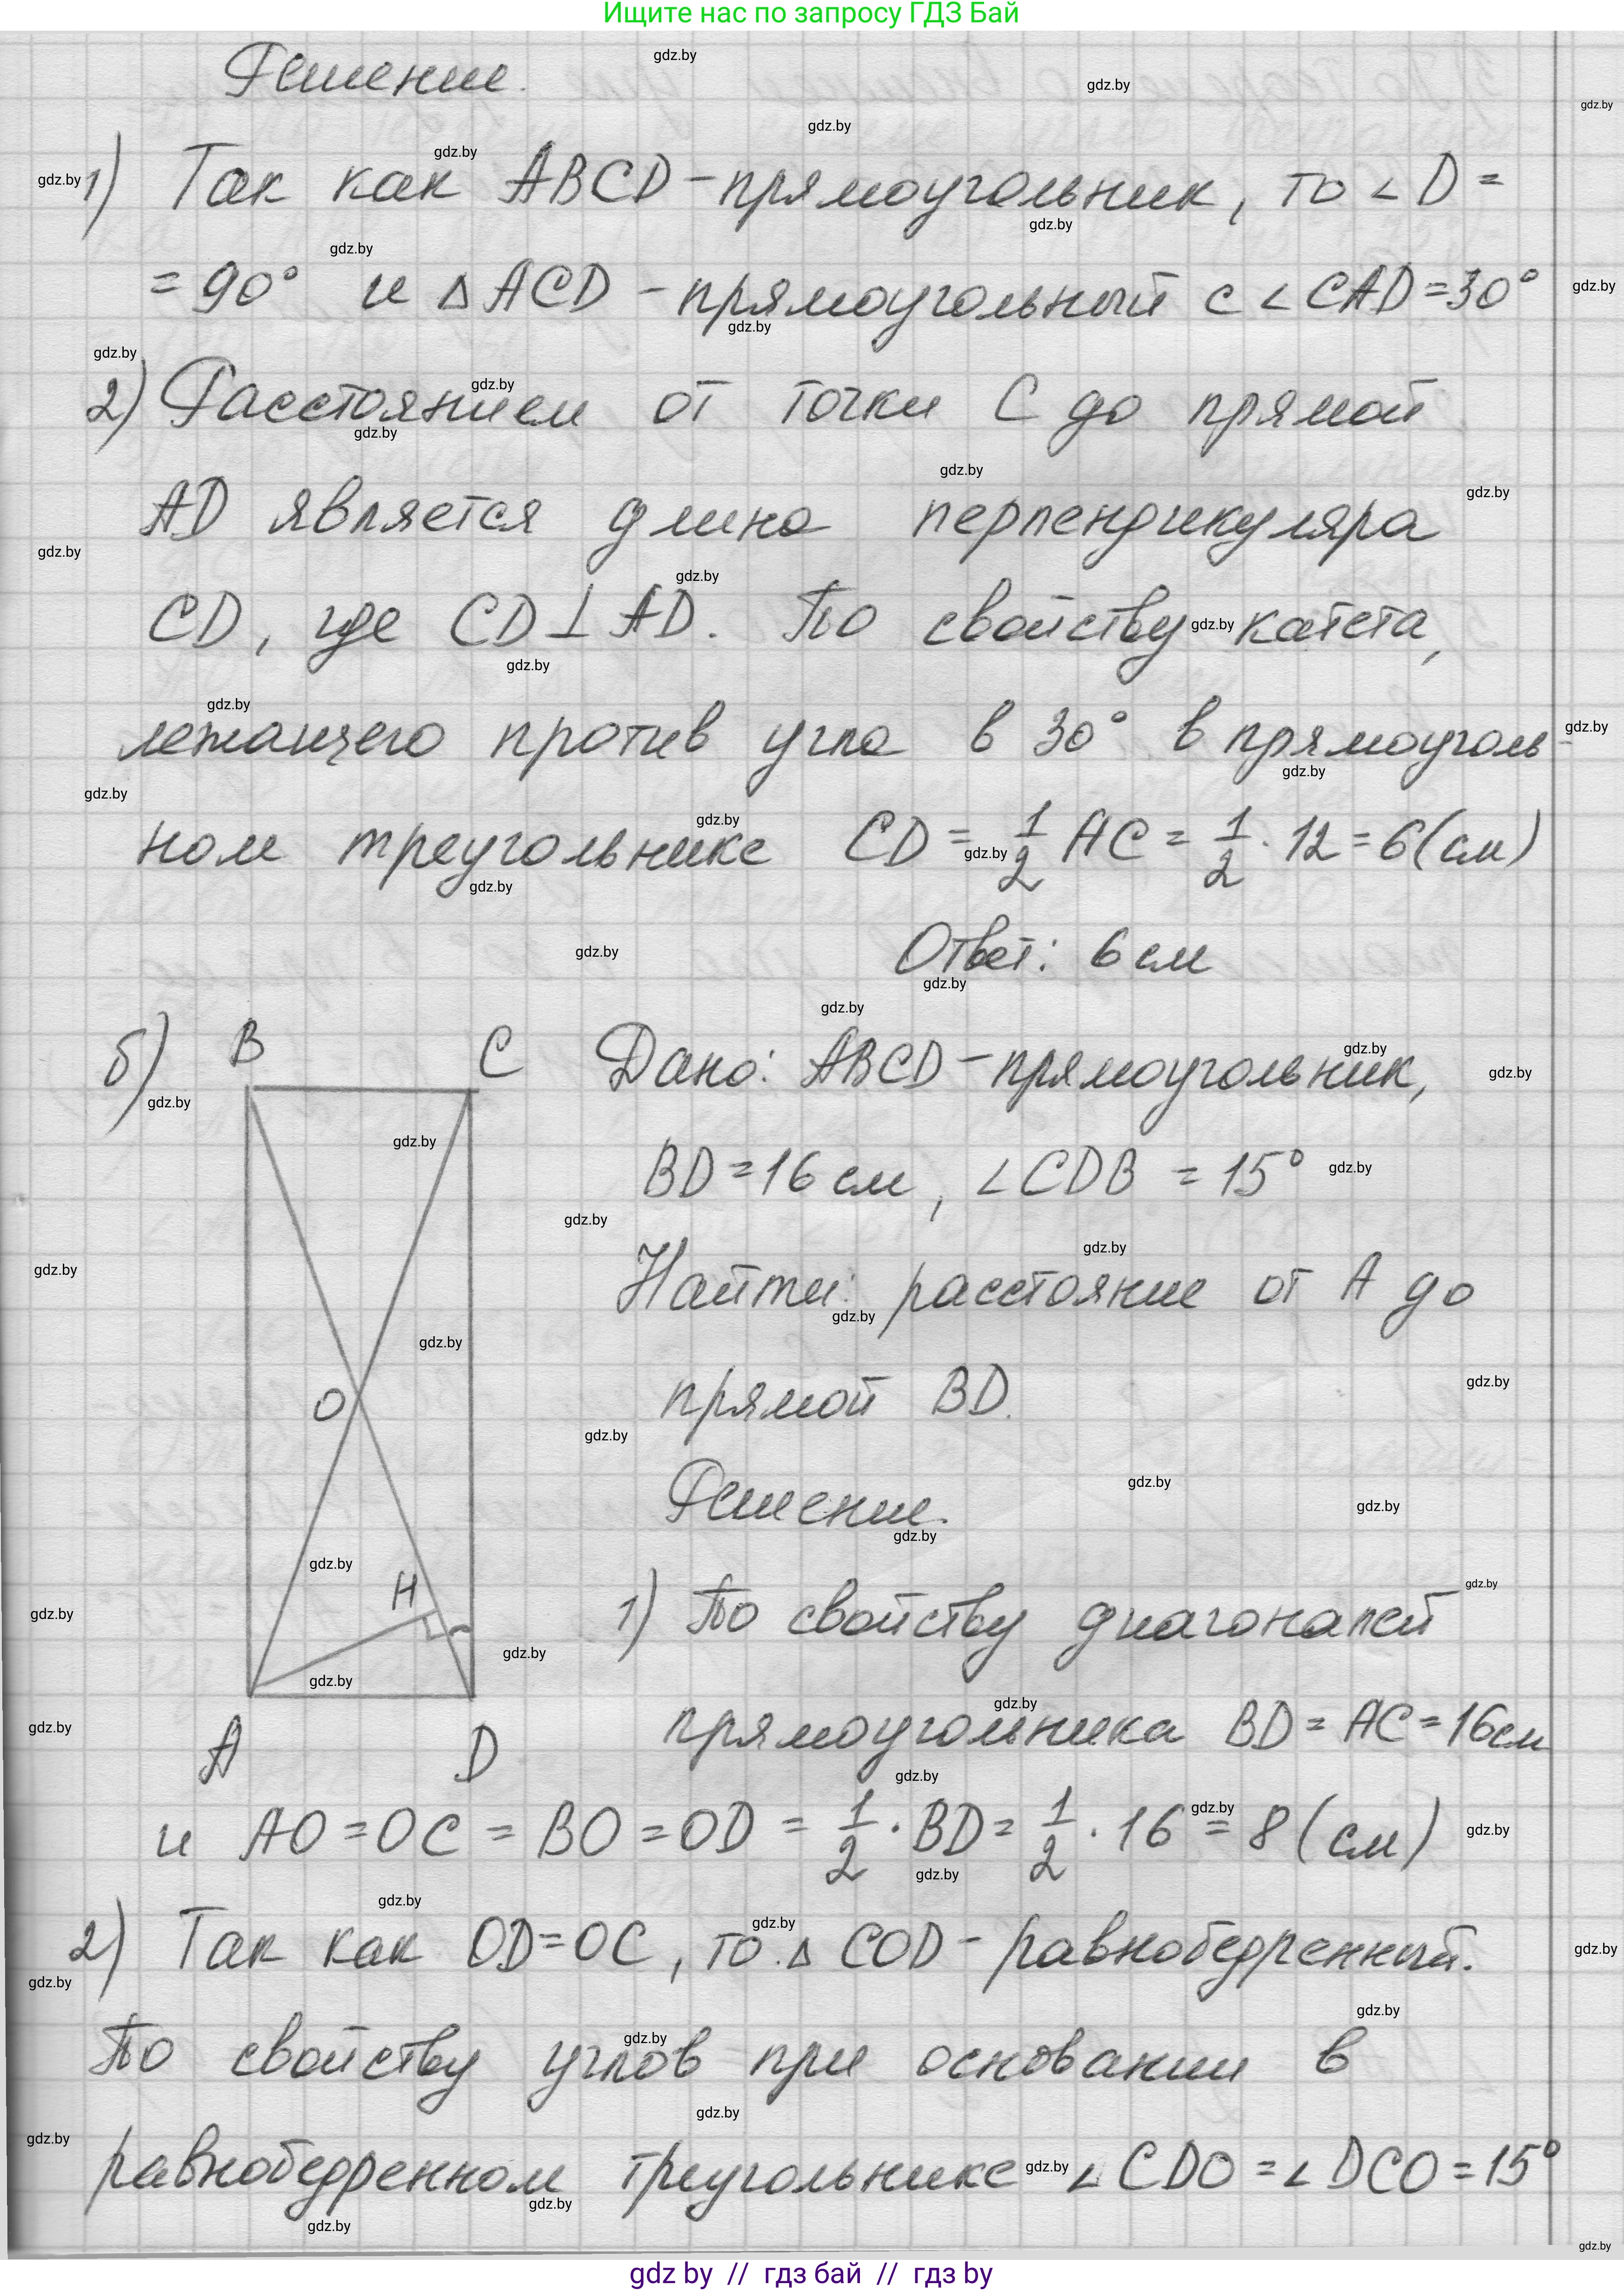 Ищите нас по запросу ГДЗ Бай
Решение.
1) Так как ABCD – прямоугольник, то ∠D =
= 90° и △ACD – прямоугольный с ∠CAD = 30°
2) Расстоянием от точки C до прямой
AD является длина перпендикуляра
CD, где CD ⊥ AD. По свойству катета,
лежащего против угла в 30° в прямоуголь-
ном треугольнике CD = 1/2 AC = 1/2 · 12 = 6 (см)
Ответ: 6 см
б) B C Дано: ABCD – прямоугольник,
BD = 16 см, ∠CDB = 15°
Найти: расстояние от A до
O прямой BD.
Решение.
H 1) По свойству диагоналей
A D прямоугольника BD = AC = 16 см
и AO = OC = BO = OD = 1/2 · BD = 1/2 · 16 = 8 (см)
2) Так как OD = OC, то △COD – равнобедренный.
По свойству углов при основании в
равнобедренном треугольнике ∠CDO = ∠DCO = 15°
gdz.by
gdz by // гдз бай // гдз by